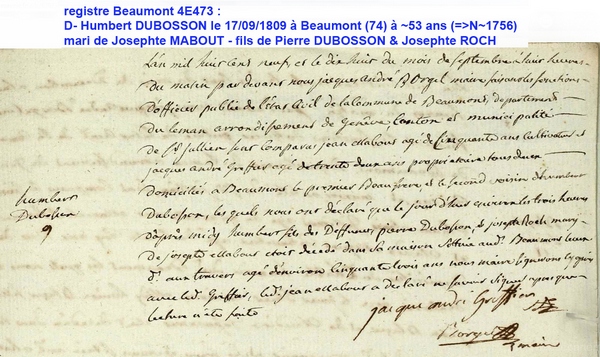 registre Beaumont 4E473 :
D- Humbert DUBOSSON le 17/09/1809 à Beaumont (74) à ~53 ans (=>N~1756)
mari de Josephte MABOUT - fils de Pierre DUBOSSON & Josephte ROCH
L'an mil huit cens neuf et le dix huit du mois de septembre à huit heures
du matin par devant nous jacques andré Borgel maire faisant les fonctions
d'officier public de l'état Civil de la Commune de Beaumont, departement
du Leman arrondissement de Genêve Canton et municipalité
de St jullien sont comparus jean Mabous agé de Cinquante ans Cultivateur et
jacques andré Greffier agé de trente deux ans proprietaire tous deux
domiciliés à Beaumont le premier Beaufrere et le second voisin d'humbert
Duboson, les quels nous ont déclaré que le jour d'hier environ les trois heures
d'après midy humbert fils des deffunts pierre Duboson, et josephte Roch mary
de josephte Mabous étoit décédé dans sa maison audt. Beaumont
agé d'environ Cinquante trois ans nous maire
avec ledt. Greffier, ledt. jean Mabous a déclaré ne savoir signer apres que
lecture a été faite
humbert
Duboson
9
jacque andre Greffier
Borgel
maire